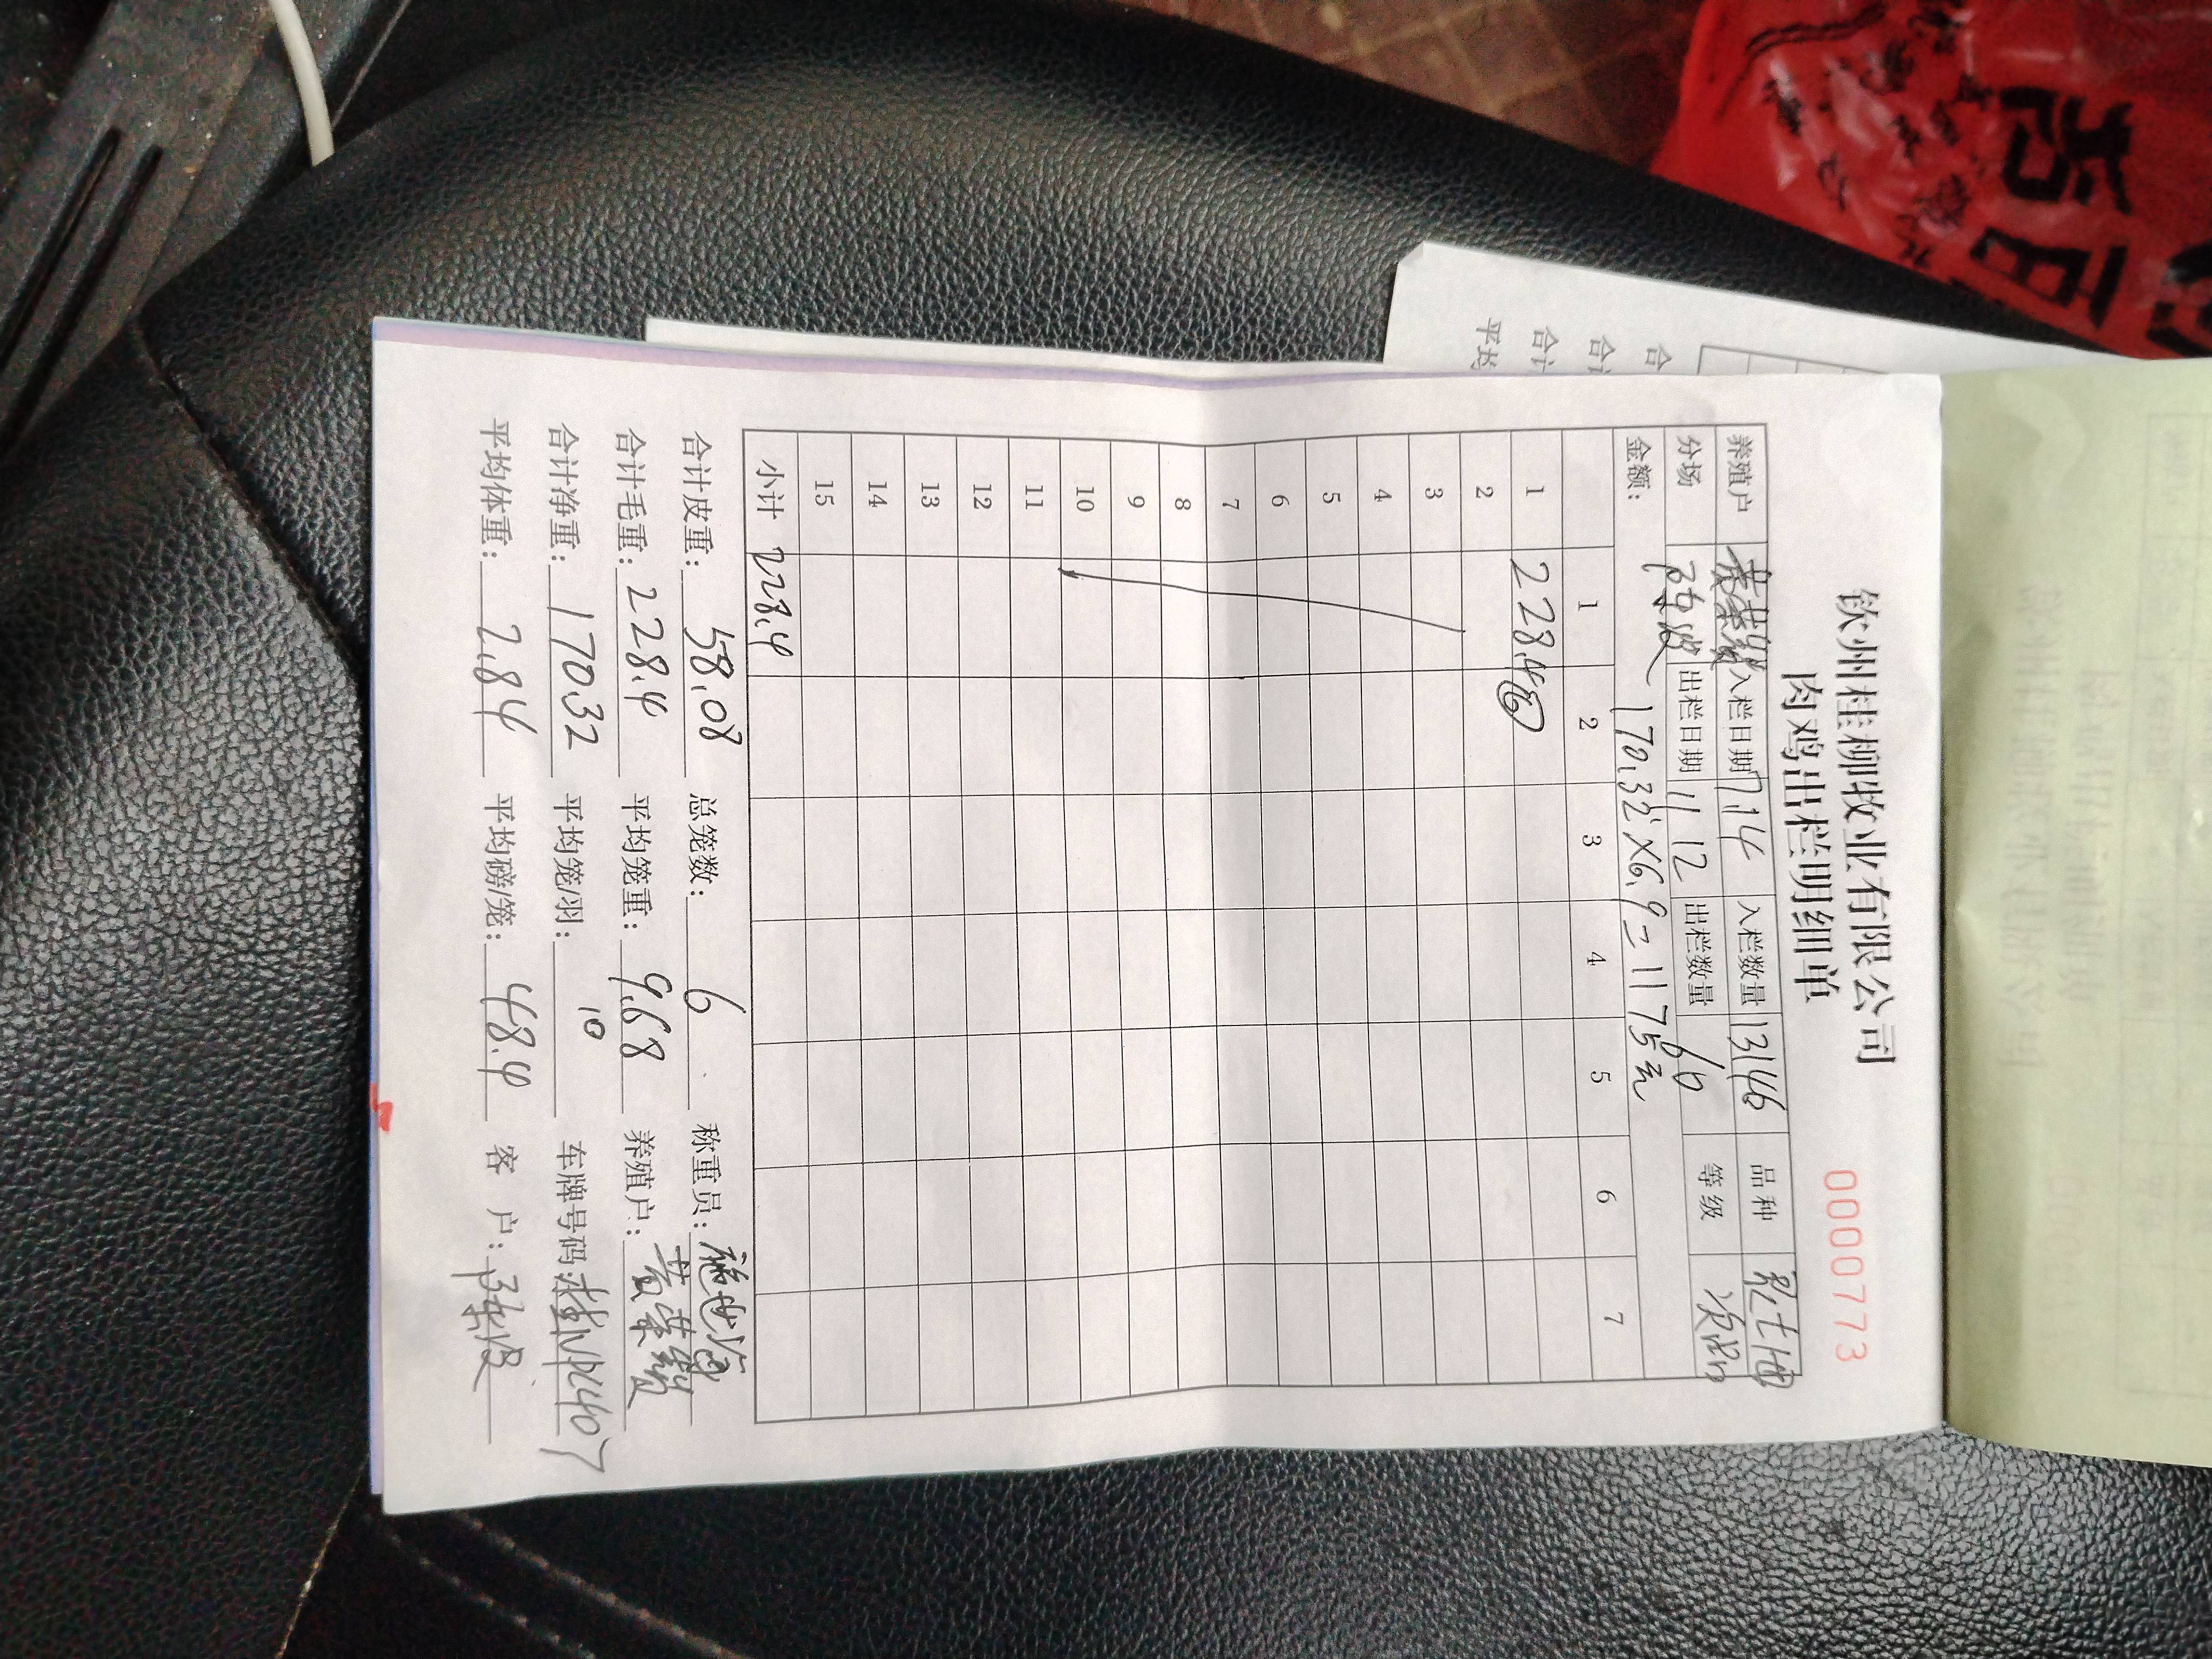 钦州桂柳牧业有限公司
肉鸡出栏明细单
0000773
养殖户 黄荣毅 入栏日期 7.14 入栏数量 13146 品种
分场 出栏日期 11 12 出栏数量 60 等级 次品
金额: 170.32×6.9=1175元
1 2 3 4 5 6 7
1 228.4 ⑥
2
3
4
5
6
7
8
9
10
11
12
13
14
15
小计 228.4
合计皮重: 58.08 总笼数: 6 称重员:
合计毛重: 228.4 平均笼重: 9.68 养殖户: 黄荣毅
合计净重: 170.32 平均笼/羽: 10 车牌号码:
平均体重: 2.84 平均磅/笼: 48.4 客 户:
合
合计
合计
平均